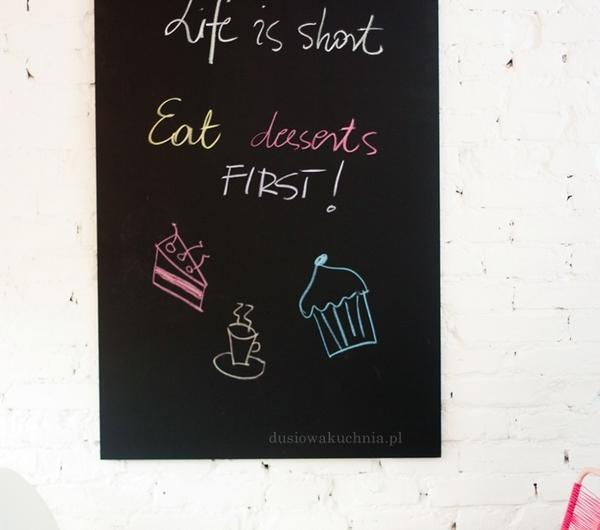 Life is short
Eat desserts
FIRST!
dusiowakuchnia.pl